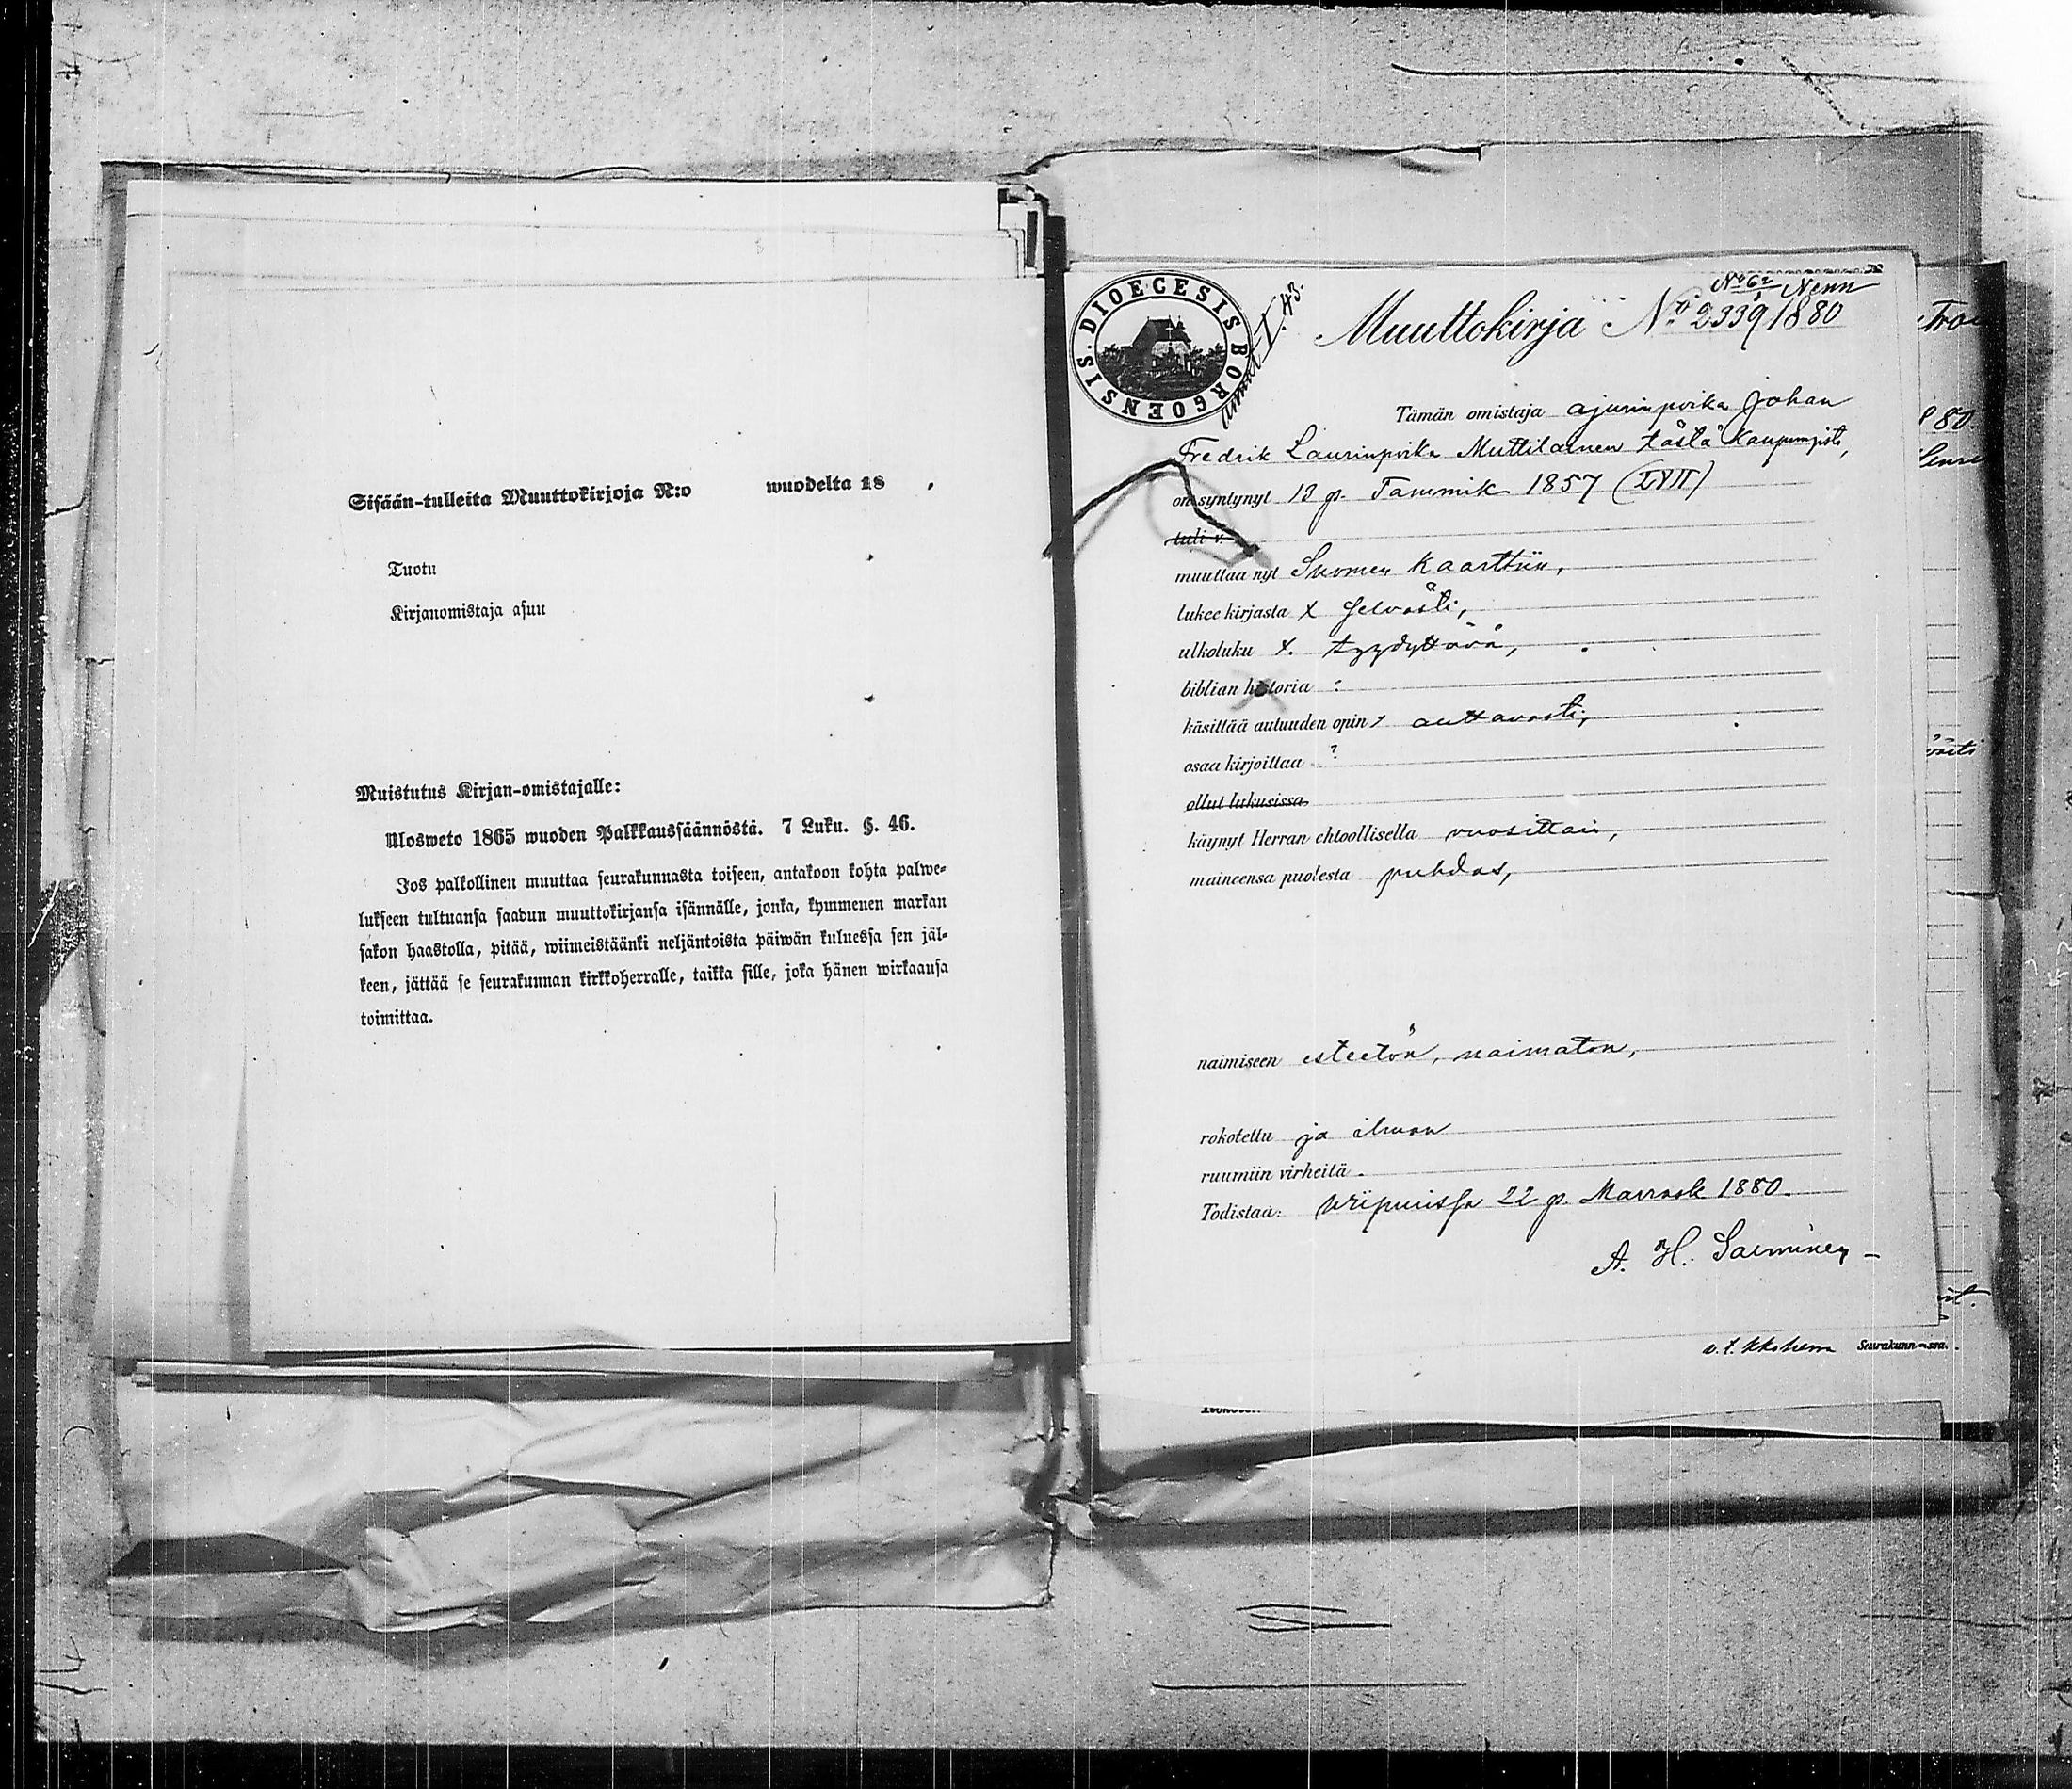 Sisään-tulleita Muuttokirjoja N:o wuodelta 18 .
Tuotu
Kirjanomistaja asuu
Muistutus Kirjan-omistajalle:
Ulosweto 1865 wuoden Palkkaussäännöstä. 7 Luku. §. 46.
Jos palkollinen muuttaa seurakunnasta toiseen, antakoon kohta palwe-
lukseen tultuansa saadun muuttokirjansa isännälle, jonka, kymmenen markan
sakon haastolla, pitää, wiimeistäänki neljäntoista päiwän kuluessa sen jäl-
keen, jättää se seurakunnan kirkkoherralle, taikka sille, joka hänen wirkaansa
toimittaa.
DIOECESIS BORGOENSIS.
I. 43.
Muuttokirja No 2339 1880
Tämän omistaja ajurinpoika Johan
Fredrik Laurinpoika Muttilainen tästä kaupungista,
on syntynyt 13 p. Tammik 1857 (LVII)
tuli v.
muuttaa nyt Suomen Kaarttiin,
lukee kirjasta x selvästi,
ulkoluku x. tyydyttävä,
biblian historia :
käsittää autuuden opin x auttavasti,
osaa kirjoittaa ?
ollut lukusissa
käynyt Herran ehtoollisella vuosittain,
maineensa puolesta puhdas,
naimiseen esteetön, naimaton,
rokotettu ja ilman
ruumiin virheitä .
Todistaa: Wiipurissa 22 p. Marrask 1880.
A. H.
v. t. Seurakunnassa.
1880.